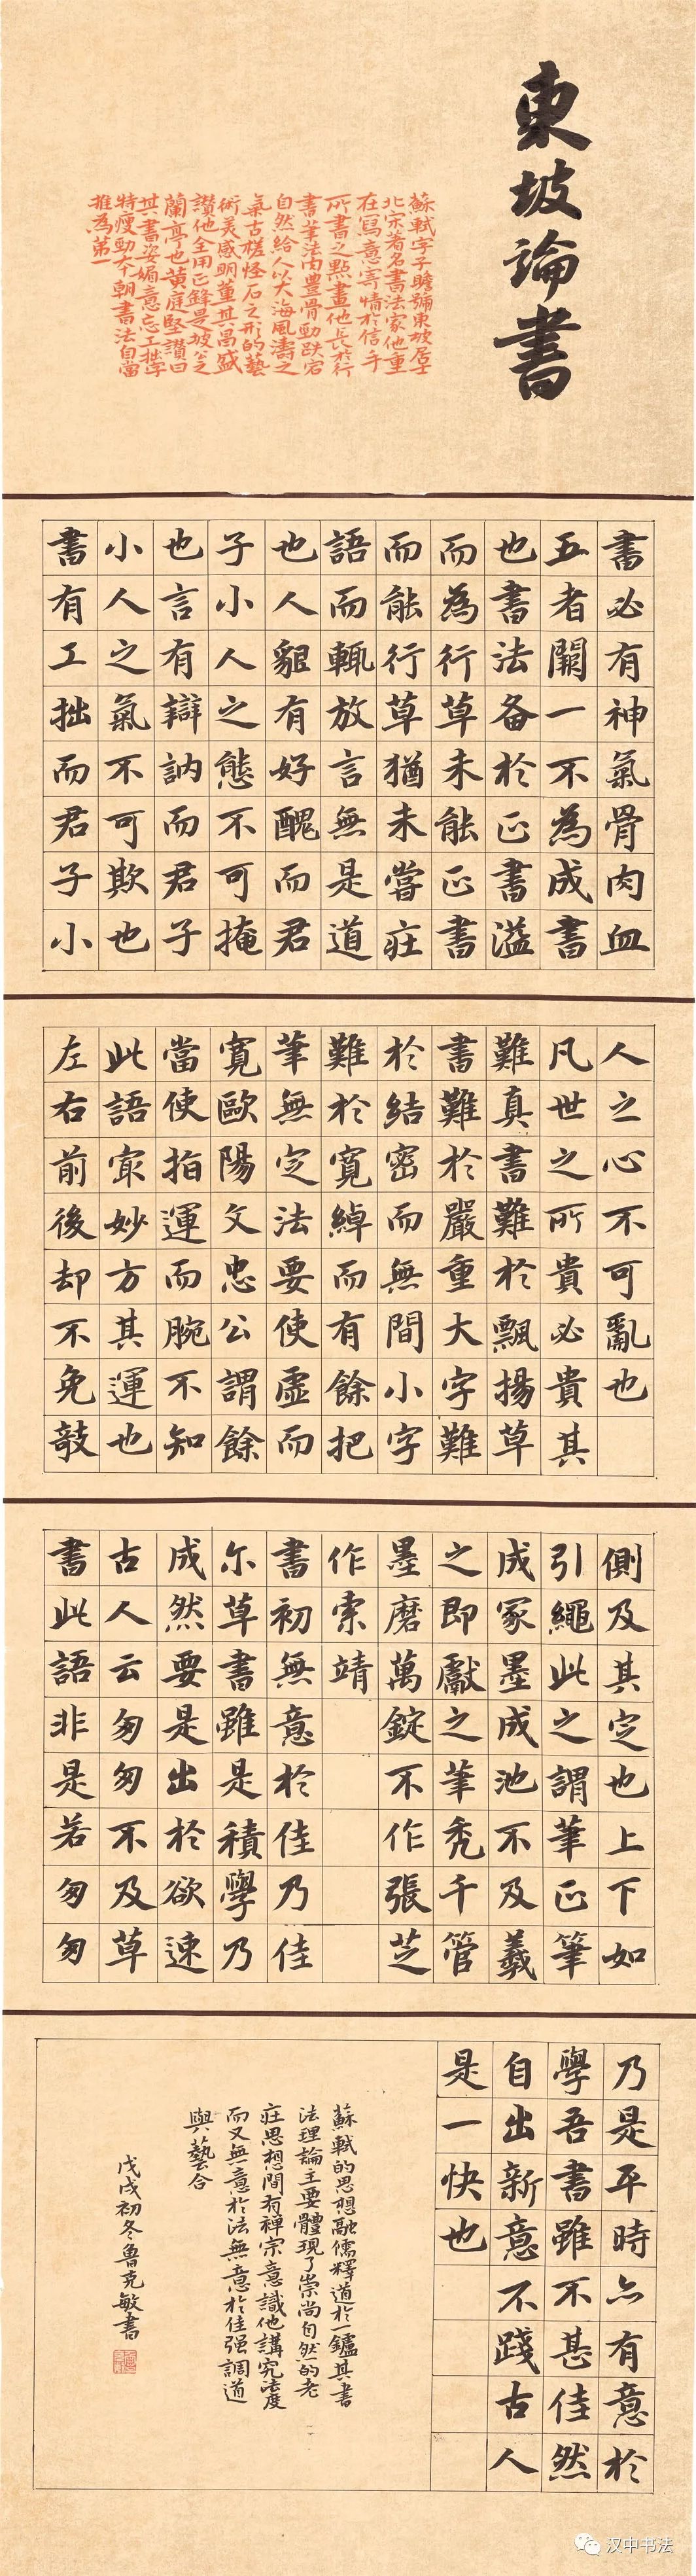 東坡論書
蘇軾字子瞻號東坡居士
北宋著名書法家他重
在寫意寄情於信手
所書之點畫他長於行
書筆法肉豊骨勁跌宕
自然給人以大海風濤之
氣古槎怪石之形的藝
術美感明董其昌盛
讚他全用正鋒是坡公之
蘭亭也黃庭堅讚曰
其書姿媚意忘工拙字
特瘦勁本朝書法自當
推為第一
書必有神氣骨肉血
五者闕一不為成書
也書法备於正書溢
而為行草未能正書
而能行草猶未嘗莊
語而輒放言無是道
也人貌有好醜而君
子小人之態不可掩
也言有辯訥而君子
小人之氣不可欺也
書有工拙而君子小
人之心不可亂也
凡世之所貴必貴其
難真書難於飄揚草
書難於嚴重大字難
於結密而無間小字
難於寬綽而有餘把
筆無定法要使虛而
寬歐陽文忠公謂餘
當使指運而腕不知
此語冣妙方其運也
左右前後却不免敧
側及其定也上下如
引繩此之謂筆正筆
成冢墨成池不及羲
之即獻之筆禿千管
墨磨萬錠不作張芝
作索靖
書初無意於佳乃佳
尔草書雖是積學乃
成然要是出於欲速
古人云匆匆不及草
書此語非是若匆匆
乃是平時亦有意於
學吾書雖不甚佳然
自出新意不踐古人
是一快也
蘇軾的思想融儒釋道於一鑪其書
法理論主要體現了崇尚自然的老
莊思想間有禅宗意識他講究法度
而又無意於法無意於佳强調道
與藝合
戊戌初冬魯克敏書
汉中书法